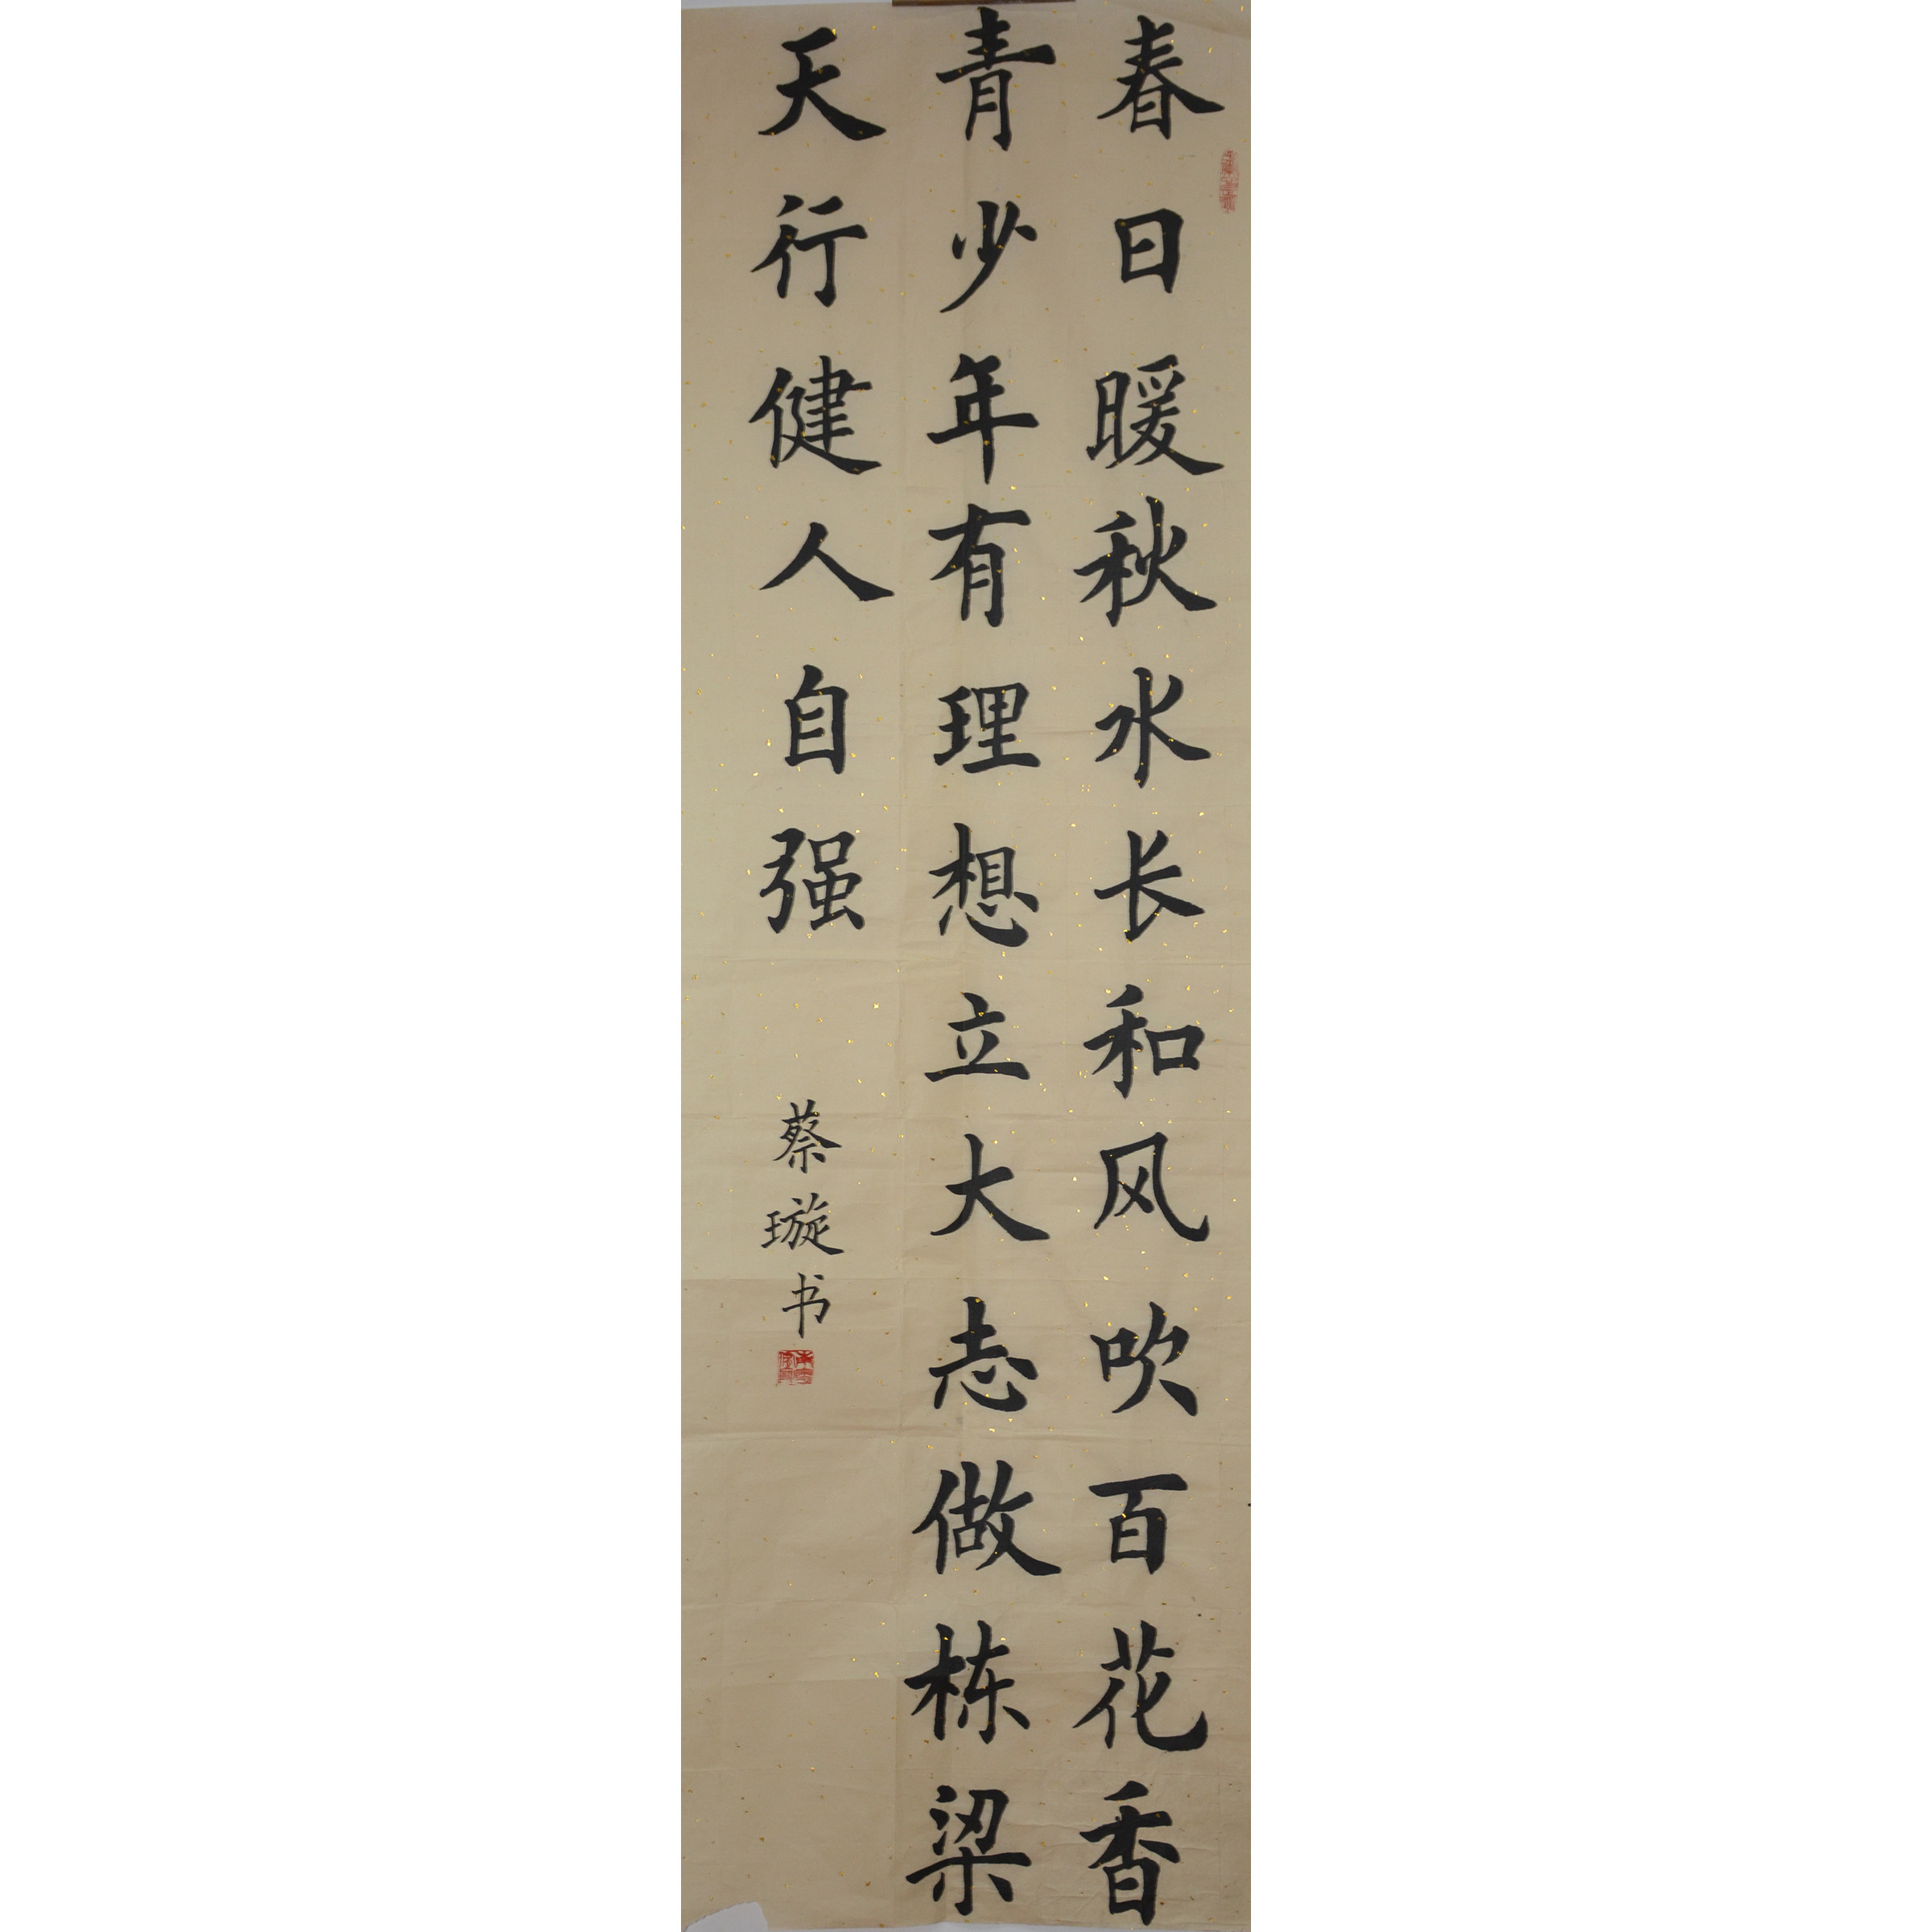 春日暖秋水长和风吹百花香
青少年有理想立大志做栋梁
天行健人自强
蔡璇书